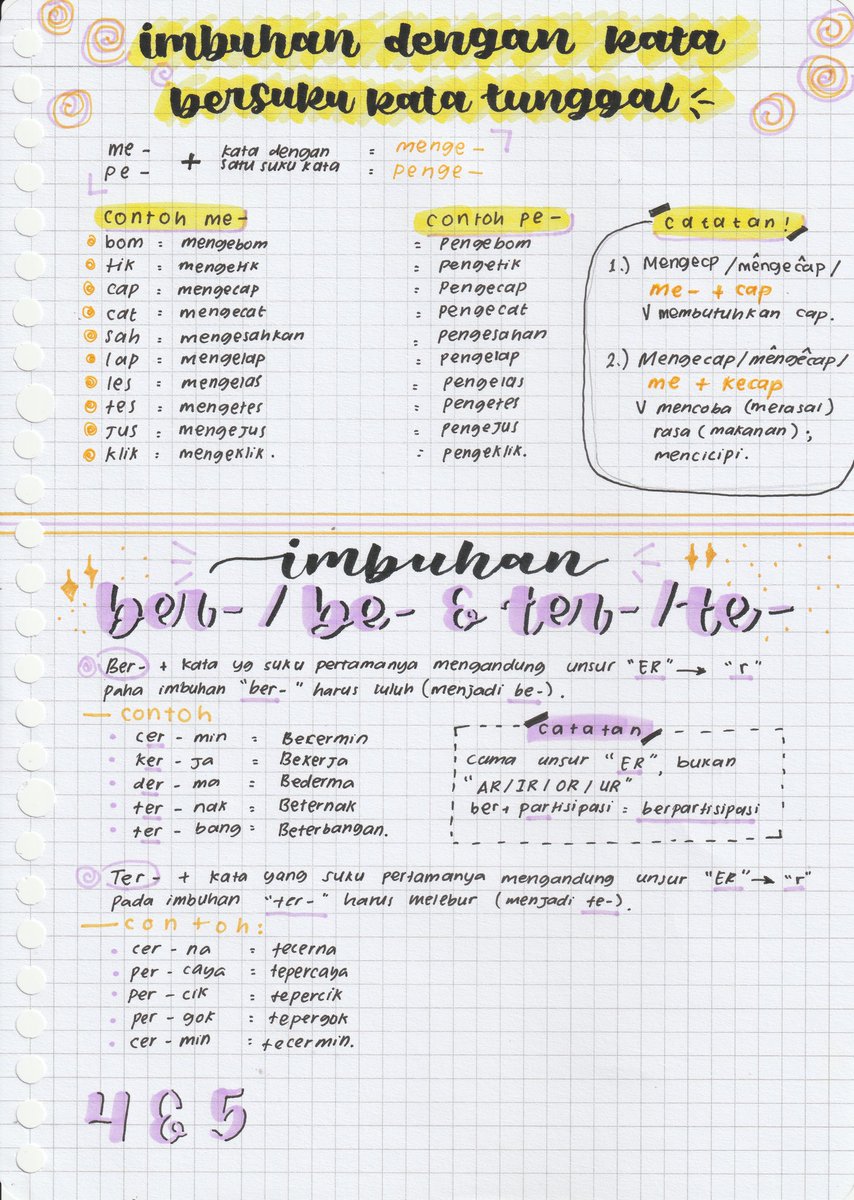 imbuhan dengan kata
bersuku kata tunggal
me - + kata dengan satu suku kata = menge -
pe - = penge -
contoh me -
contoh pe -
bom : mengebom = pengebom
tik : mengetik : pengetik
cap : mengecap : Pengecap
cat : mengecat : Pengecat
sah : mengesahkan : pengesahan
lap : mengelap : pengelap
les : mengelas : pengelas
tes : mengetes : pengetes
Jus : mengejus : pengejus
klik : mengeklik. : pengeklik.
catatan!
1.) Mengecp /mêngecâp/
me - + cap
V membutuhkan cap.
2.) Mengecap/mêngêcap/
me + kecap
V mencoba (merasai)
rasa (makanan);
mencicipi.
imbuhan
ber- / be- & ter- / te-
Ber- + kata yg suku pertamanya mengandung unsur "ER" → "r"
paha imbuhan "ber-" harus luluh (menjadi be-).
— contoh
cer - min = Becermin
ker - ja = Bekerja
der - ma = Bederma
ter - nak = Beternak
ter - bang = Beterbangan.
catatan
cuma unsur "ER", bukan
"AR/IR/OR/UR"
ber+ partisipasi = berpartisipasi
Ter - + kata yang suku pertamanya mengandung unsur "ER" → "r"
pada imbuhan "ter-" harus melebur (menjadi te-).
— contoh:
cer - na = tecerna
per - caya = tepercaya
per - cik : tepercik
per - gok : tepergok
cer - min : tecermin.
4 & 5